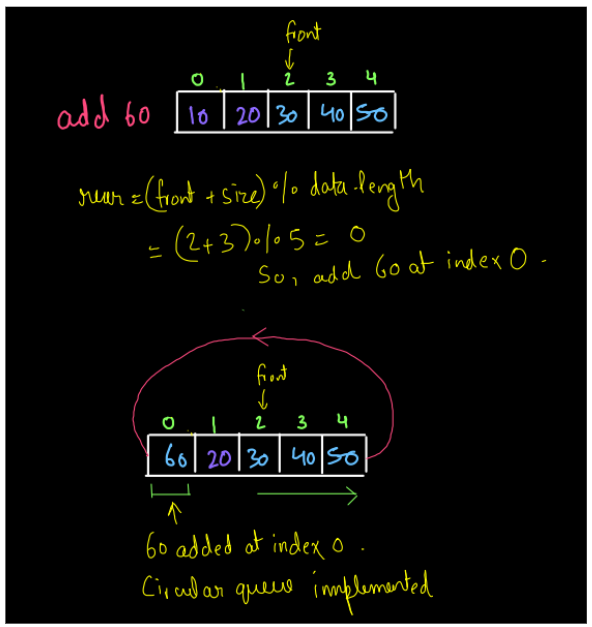 front
0 1 2 3 4
add 60 10 20 30 40 50
rear = (front + size) % data.length
= (2+3) % 5 = 0
So, add 60 at index 0.
front
0 1 2 3 4
60 20 30 40 50
60 added at index 0.
Circular queue innplemented